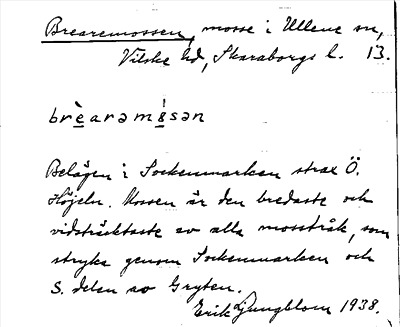 Brearemossen, mosse i Ullene sn,
Vilske hd, Skaraborgs l. 13.
brèarəmåsən
Belägen i Sockenmarken strax Ö.
Höjeln. Mossen är den bredaste och
vidsträcktaste av alla mosstråk, som
stryka genom Sockenmarken och
S. delen av Gryten.
Erik Ljungblom 1938.